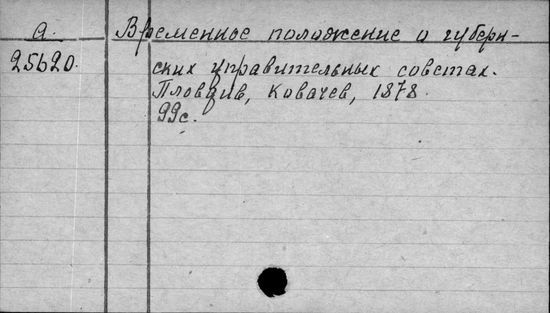 а.
Временное положение о губерн-
25620.
ских управительных советах.
Пловдив, Ковачев, 1878.
99с.